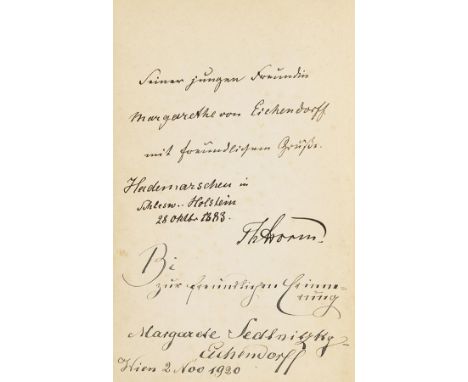 Seiner jungen Freundin
Margarethe von Eichendorff
mit freundlichem Gruße.
Hademarschen in
Schlesw.-Holstein
28 Oktbr 1883.
ThStorm.
zur freundlichen Erinne-
rung
Margarete Sedlnitzky-
Eichendorff
Wien 2 Nov 1920